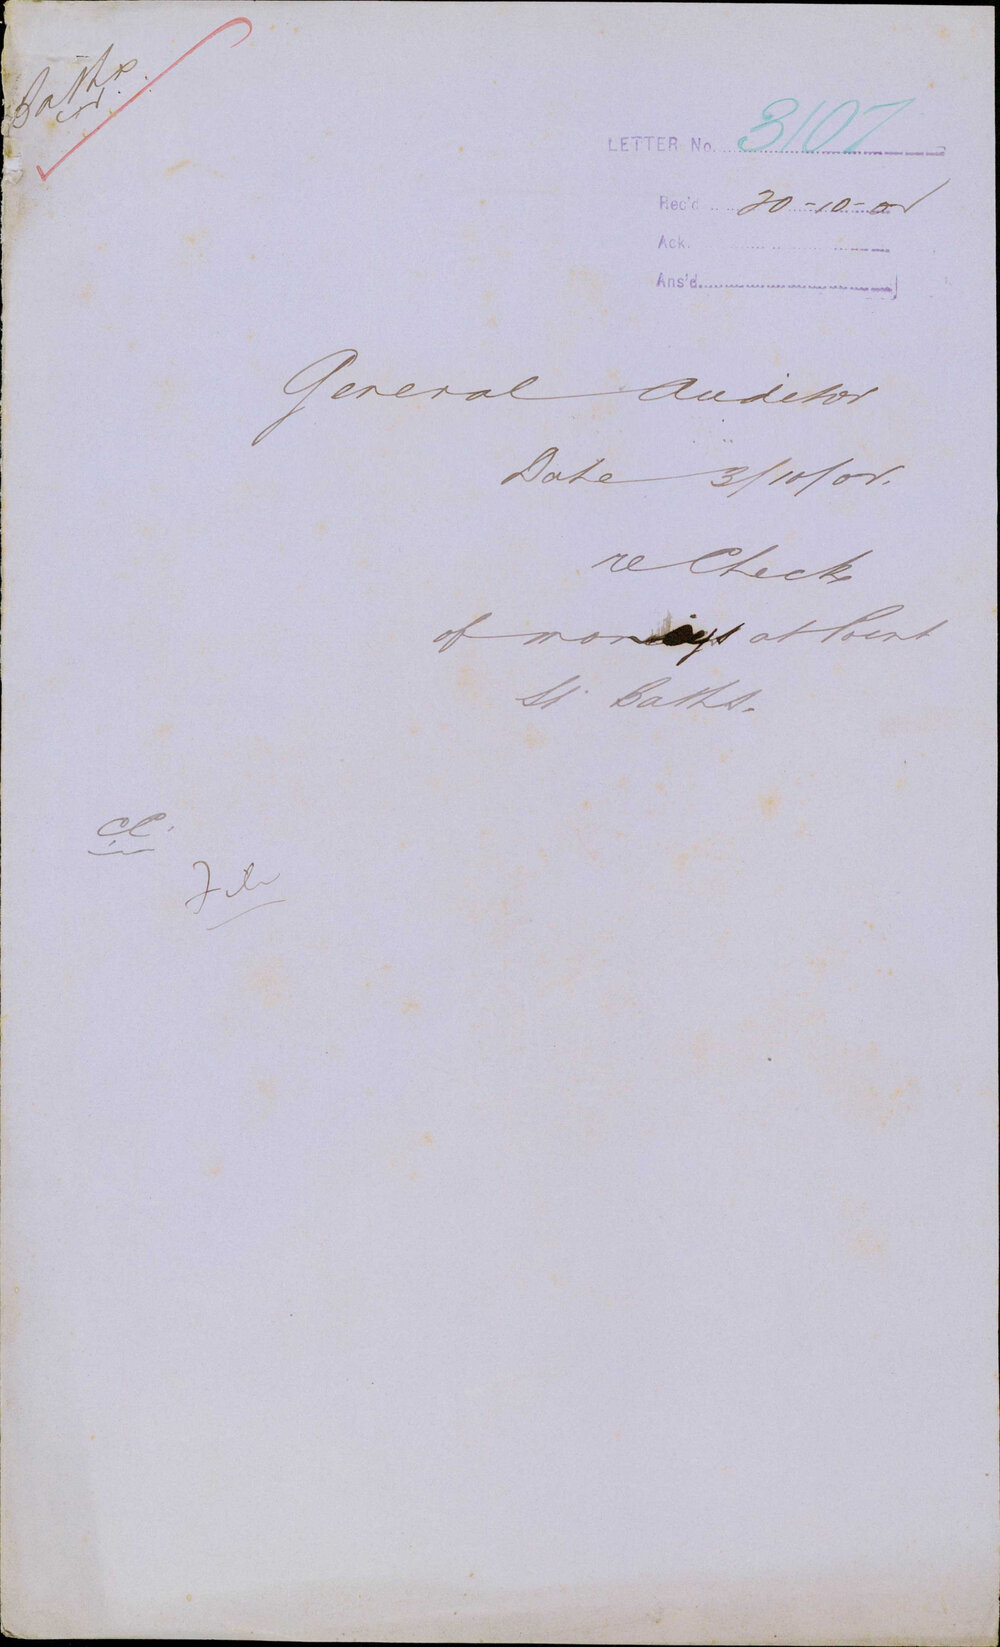 Baths
LETTER No. 3107
Rec'd 20-10-02
Ack.
Ans'd
General Auditor
Date 3/10/02.
re Check
of moneys at Point
St Baths.
CC.
File